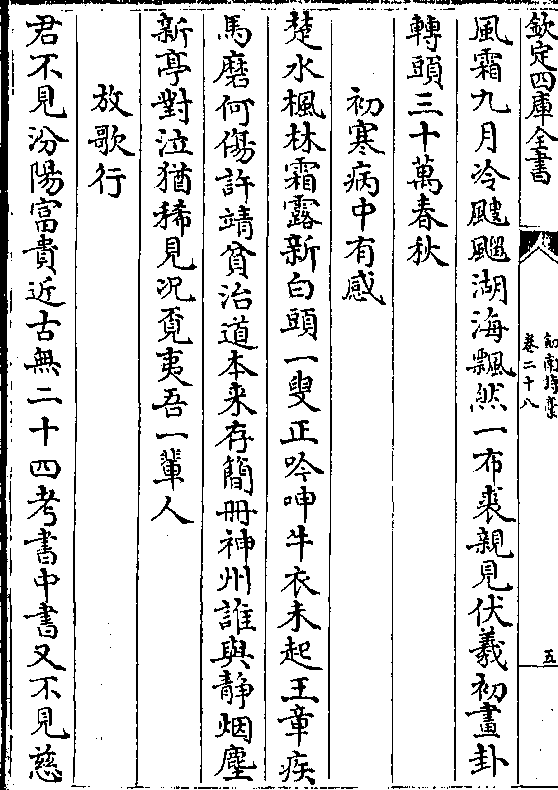 欽定四庫全書
劍南詩藁
卷二十八
五
風霜九月冷颼飀湖海飄然一布裘親見伏羲初畫卦
轉頭三十萬春秋
初寒病中有感
楚水楓林霜露新白頭一叟正吟呻牛衣未起王章疾
馬磨何傷許靖貧治道本来存簡冊神州誰與靜烟塵
新亭對泣猶稀見况覔夷吾一輩人
放歌行
君不見汾陽富貴近古無二十四考書中書又不見慈